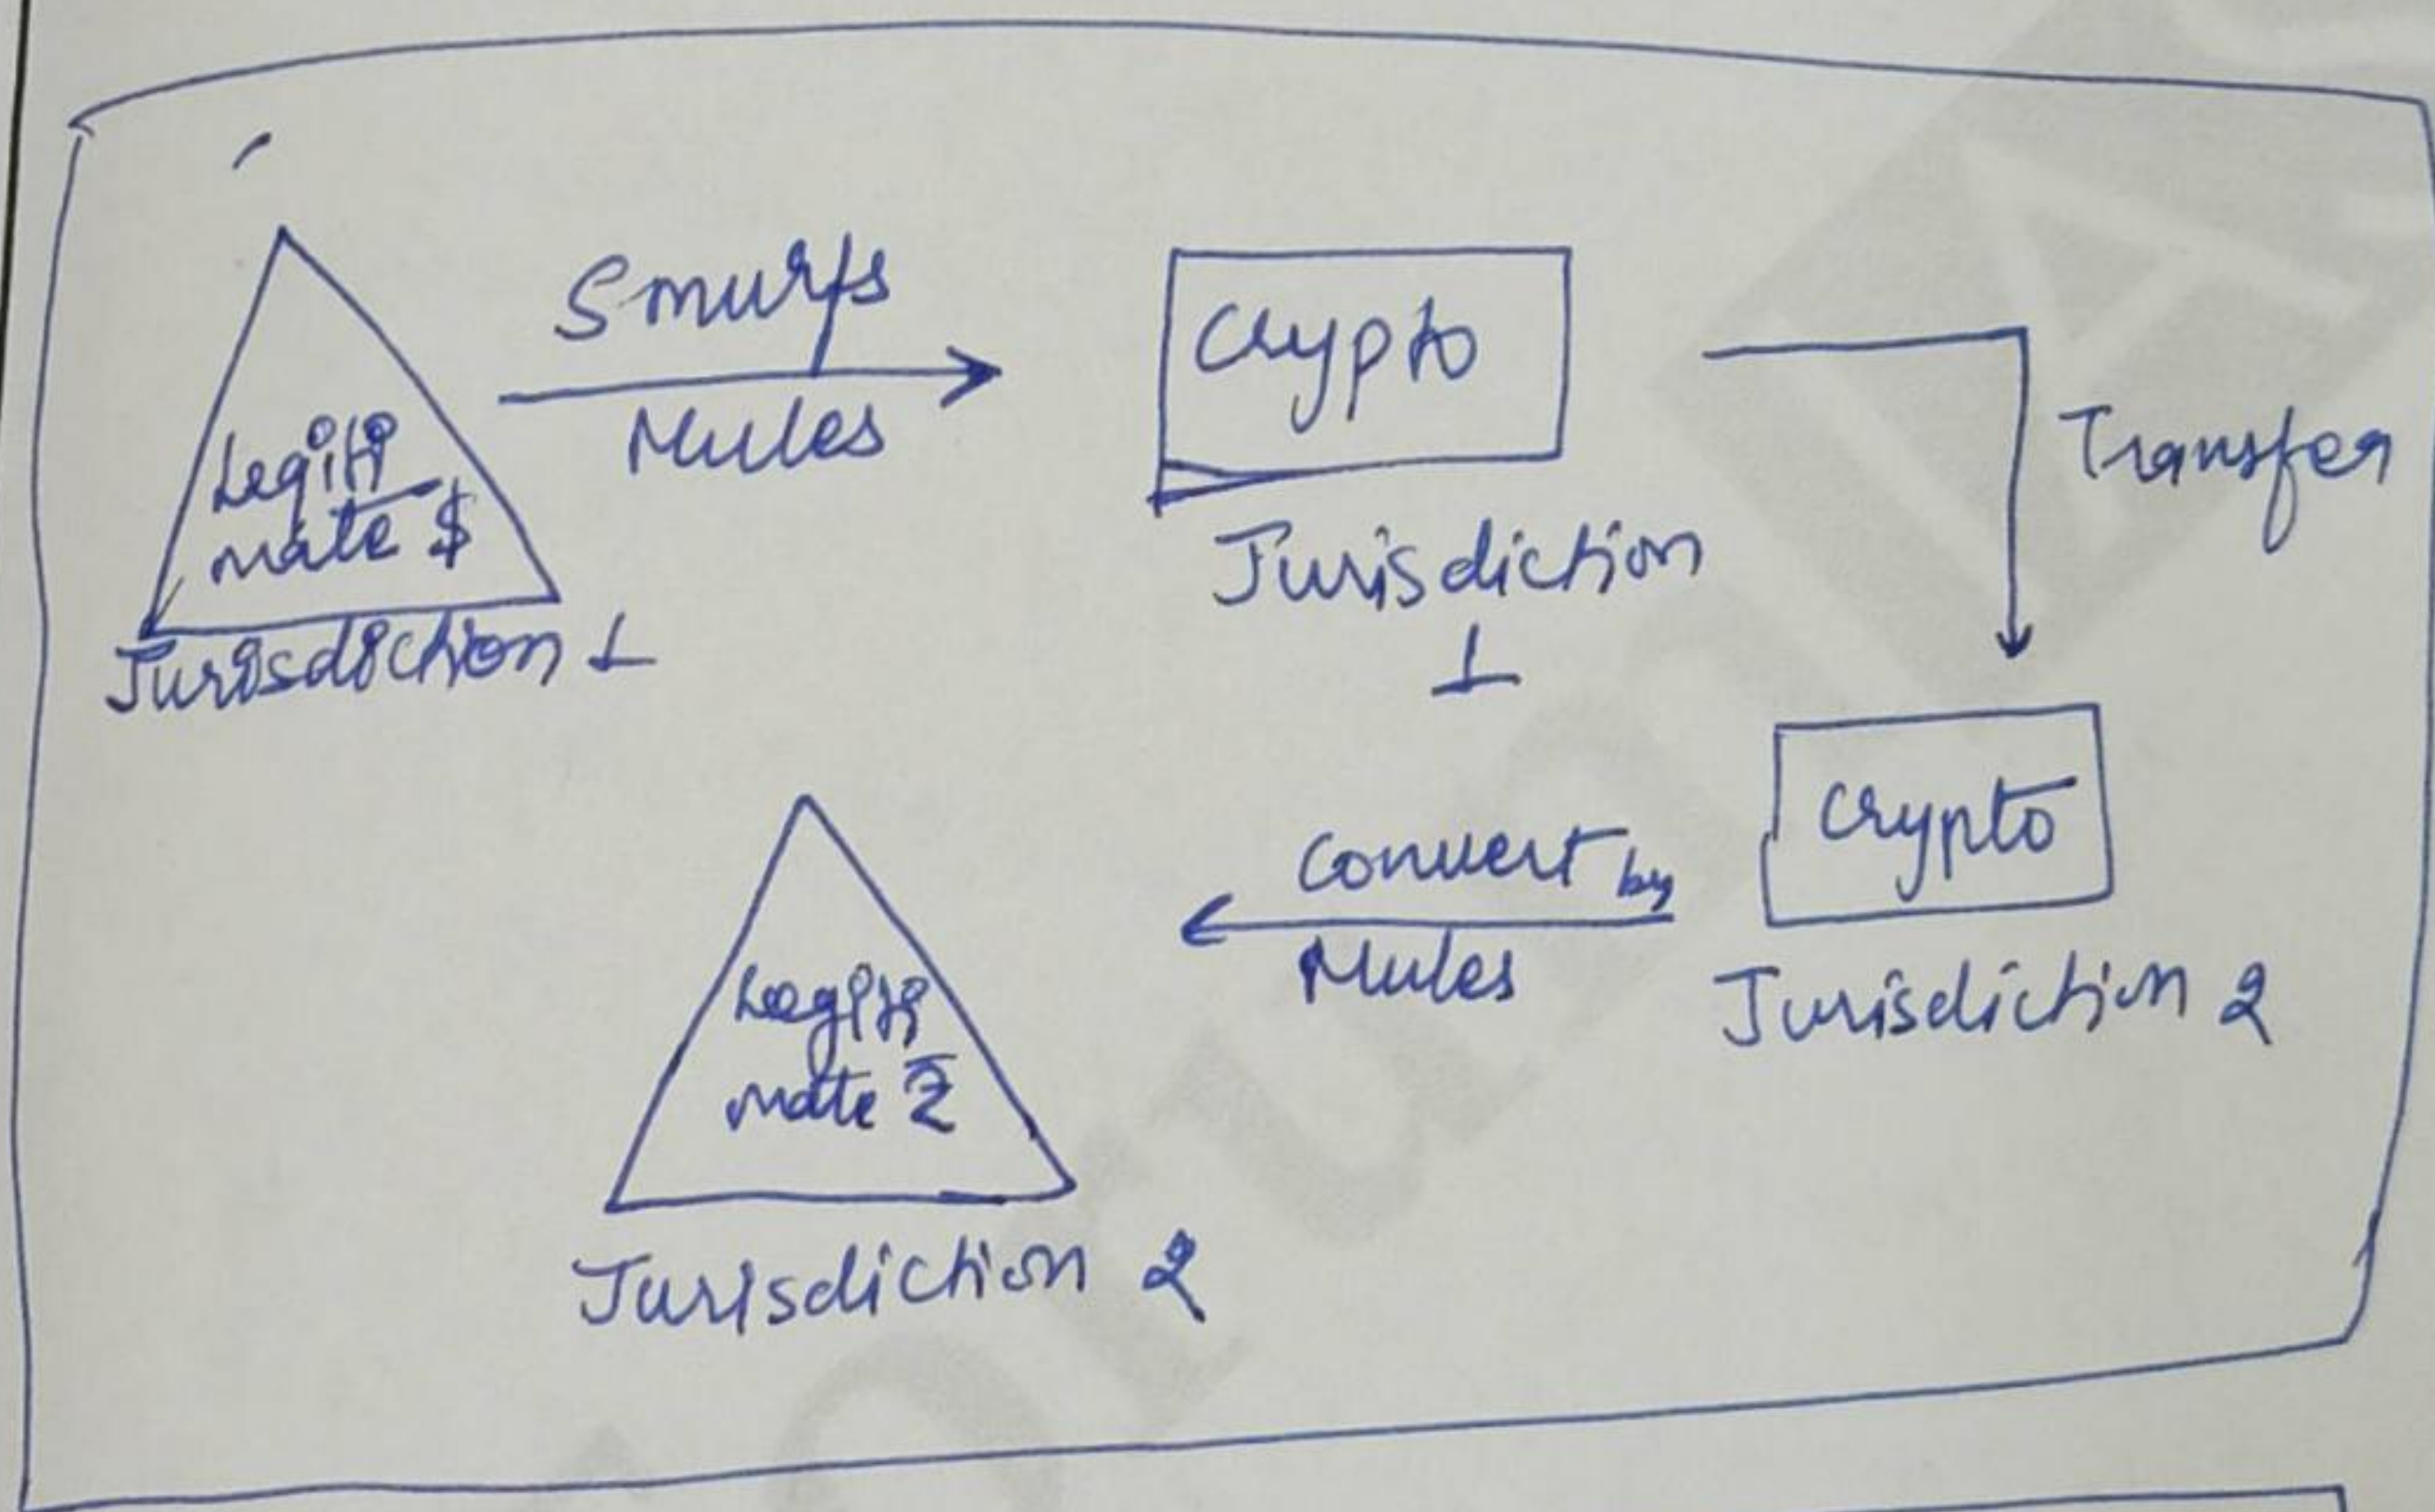 Smurfs
Mules
Legiti
mate $
Jurisdiction 1
Crypto
Jurisdiction
1
Transfer
Crypto
Jurisdiction 2
Convert by
Mules
Legiti
mate ₹
Jurisdiction 2